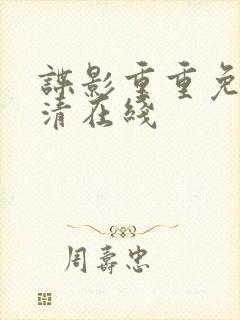 諜影重重免
清在綫
周壽忠